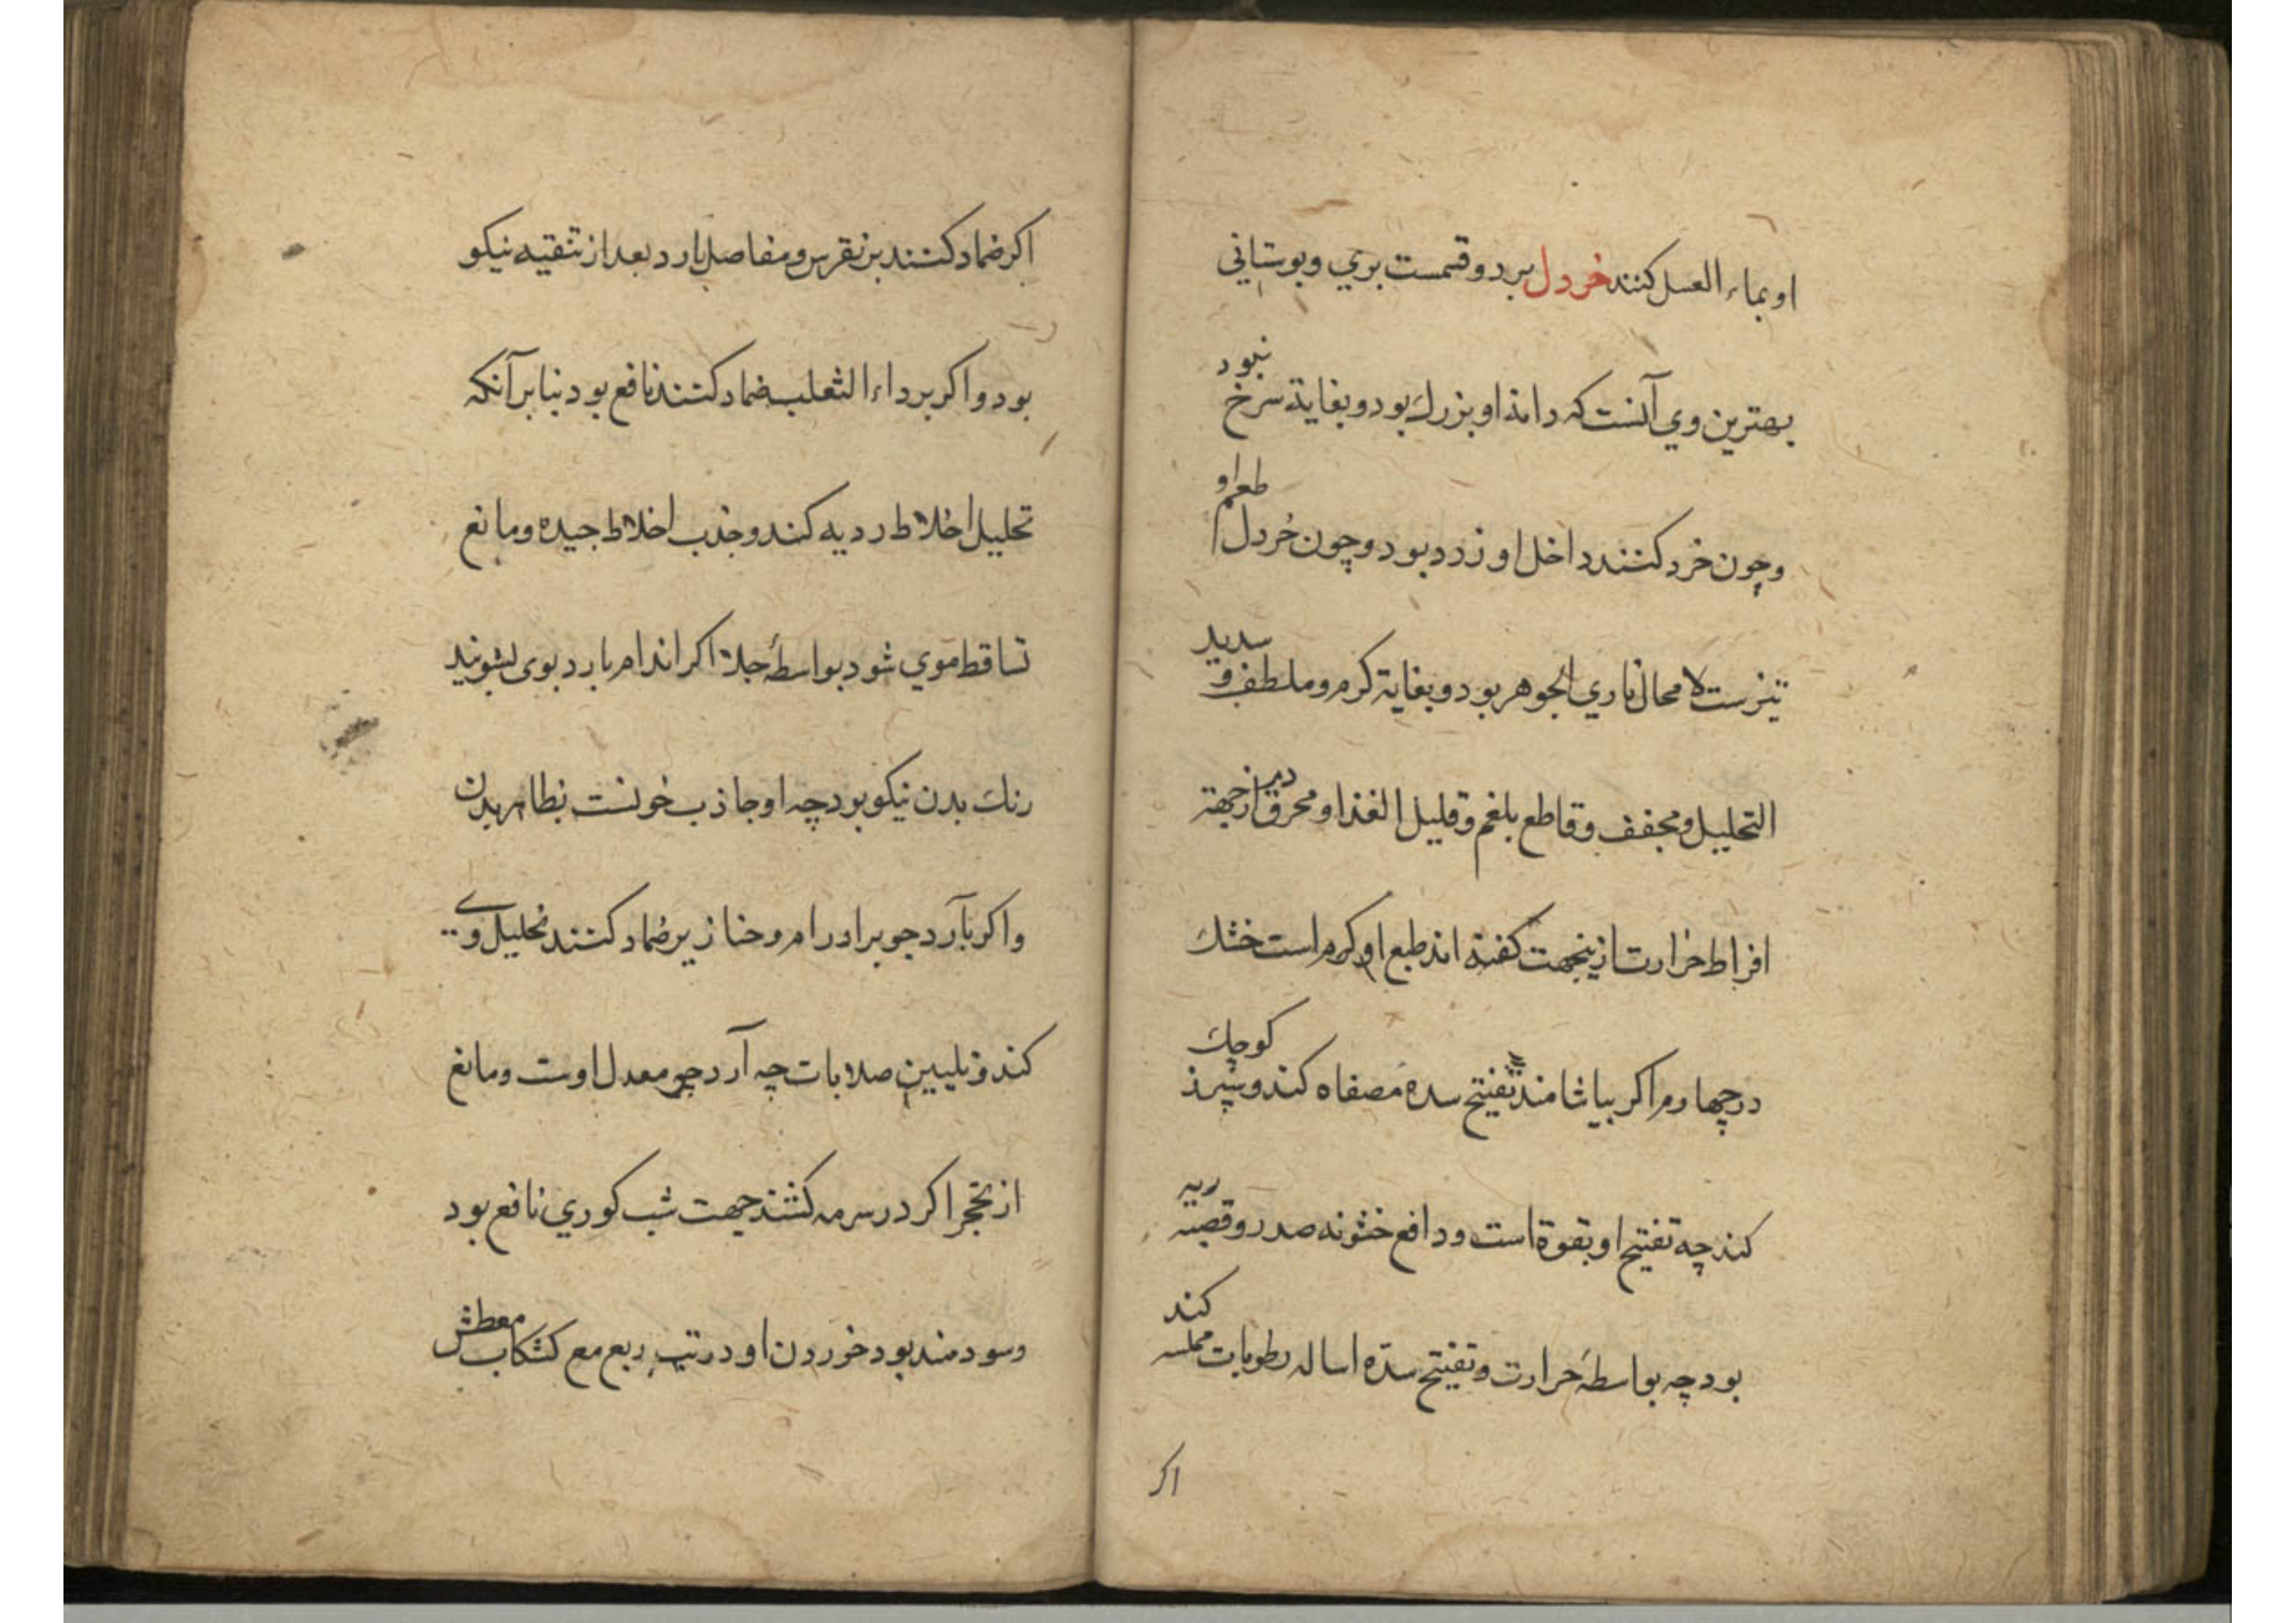 او بماء العسل کنند خردل بر دو قسمست بري و بوستاني
بهترین وي آنست که دانهٔ او بزرك بود و بغایة سرخ نبود
و چون خرد کنند داخل او زرد بود و چون خُردل طعم او
تیزست لا محال ناري الجوهر بود و بغایة کرم و ملطف و سدید
التحلیل و مجفف و قاطع بلغم و قلیل الغذا و محرق دم از جهة
افراط حرارت ازینجهت کفته اند طبع او کرم است خشك
در چهارم اکر بیاشامند تفتیح سده مصفاه کند و سپرز کوچك
کند چه تفتیح او بقوة است و دافع خشونه صدر و قصبه ریه
بود چه بواسطهٔ حرارت و تفتیح سدّه اساله رطوبات مملسه کند
اکر
اکر ضماد کنند بر نقرس و مفاصل بارد بعد از تنقیه نیکو
بود و اکر بر داء الثعلب ضماد کنند نافع بود بنا بر آنکه
تحلیل اخلاط ردیه کند و جذب اخلاط جیده و مانع
تساقط موي شود بواسطهٔ جلا اکر اندام بارد بوی بشویند
رنك بدن نیکو بود چه او جاذب خونست بظاهر بدن
و اکر بآرد جو بر اورام و خنازیر ضماد کنند تحلیل وے
کند و تلیین صلابات چه آرد جو معدل اوست و مانع
از تحجر اکر در سرمه کنند جهت شب کوري نافع بود
و سودمند بود خوردن او در تب ربع مع کشکاب معطش